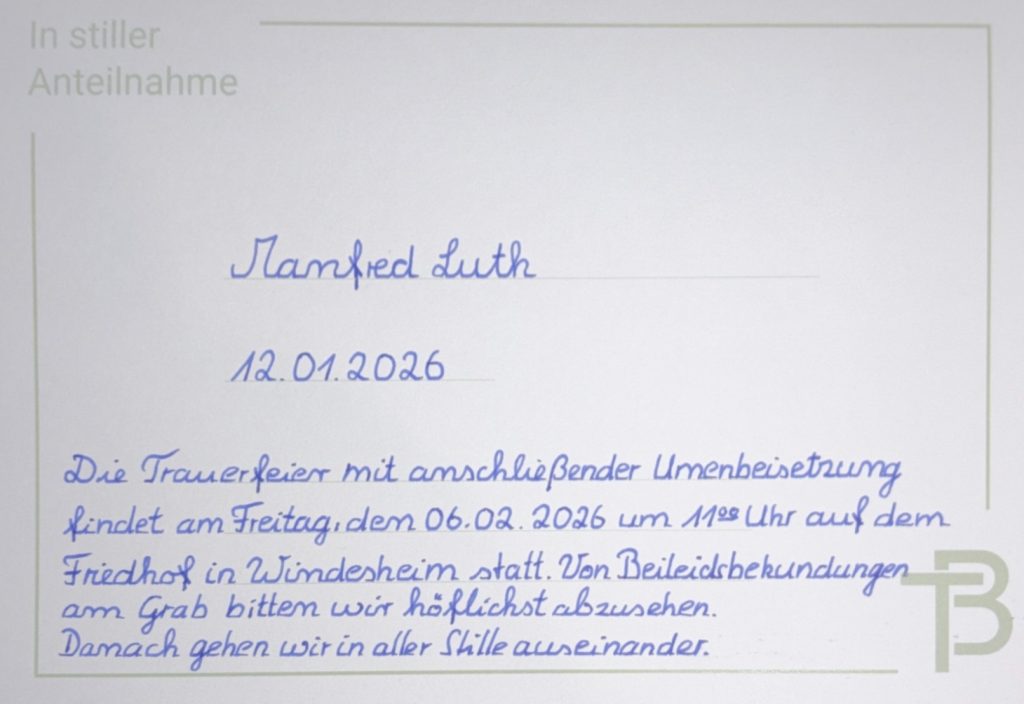 In stiller
Anteilnahme
Manfred Luth
12.01.2026
Die Trauerfeier mit anschließender Urnenbeisetzung
findet am Freitag, dem 06.02.2026 um 11⁰⁰ Uhr auf dem
Friedhof in Windesheim statt. Von Beileidsbekundungen
am Grab bitten wir höflichst abzusehen.
Danach gehen wir in aller Stille auseinander.
TB